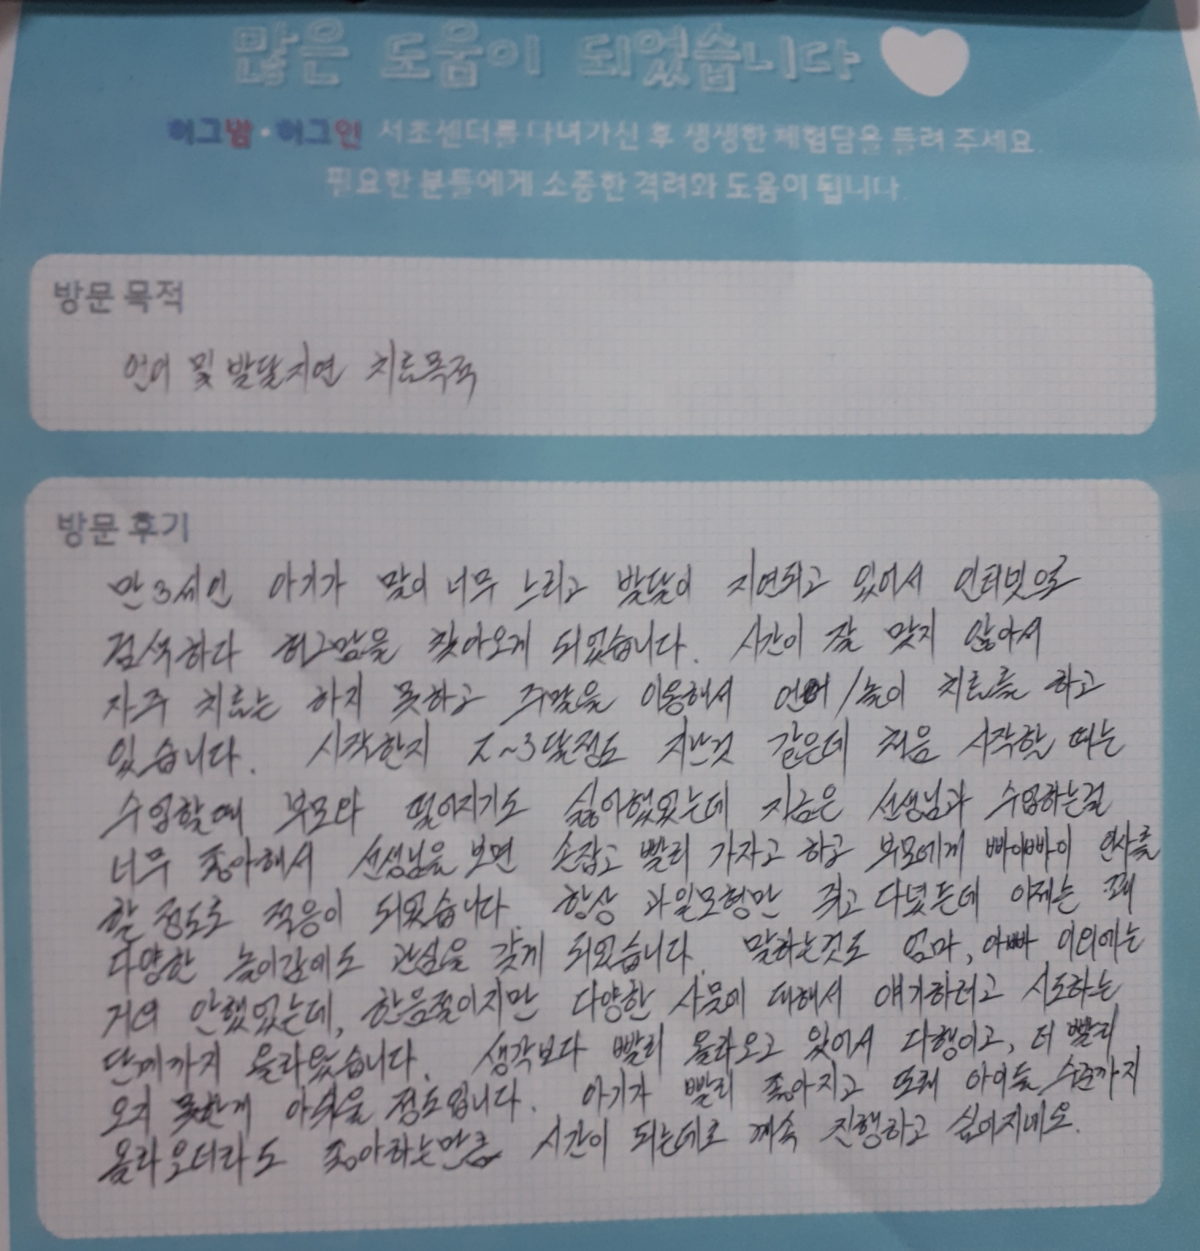 많은 도움이 되었습니다
허그맘·허그인 서초센터를 다녀가신 후 생생한 체험담을 들려 주세요.
필요한 분들에게 소중한 격려와 도움이 됩니다.
방문 목적
언어 및 발달지연 치료목적
방문 후기
만3세인 아기가 말이 너무 느리고 발달이 지연되고 있어서 인터넷으로
검색하다 허그맘을 찾아오게 되었습니다. 시간이 잘 맞지 않아서
자주 치료는 하지 못하고 주말을 이용해서 언어/놀이 치료를 하고
있습니다. 시작한지 2~3달정도 지난것 같은데 처음 시작할 때는
수업할때 부모와 떨어지기도 싫어했었는데 지금은 선생님과 수업하는걸
너무 좋아해서 선생님을 보면 손잡고 빨리 가자고 하고 부모에게 빠이빠이 인사를
할 정도로 적응이 되었습니다. 항상 과일모형만 쥐고 다녔는데 이제는 꽤
다양한 놀이감에도 관심을 갖게 되었습니다. 말하는것도 엄마, 아빠 이외에는
거의 안했었는데, 한음절이지만 다양한 사물에 대해서 얘기하려고 시도하는
단계까지 올라왔습니다. 생각보다 빨리 올라오고 있어서 다행이고, 더 빨리
오지 못한게 아쉬울 정도입니다. 아기가 빨리 좋아지고 또래 아이들 수준까지
올라오더라도 좋아하는만큼 시간이 되는데로 계속 진행하고 싶어지네요.